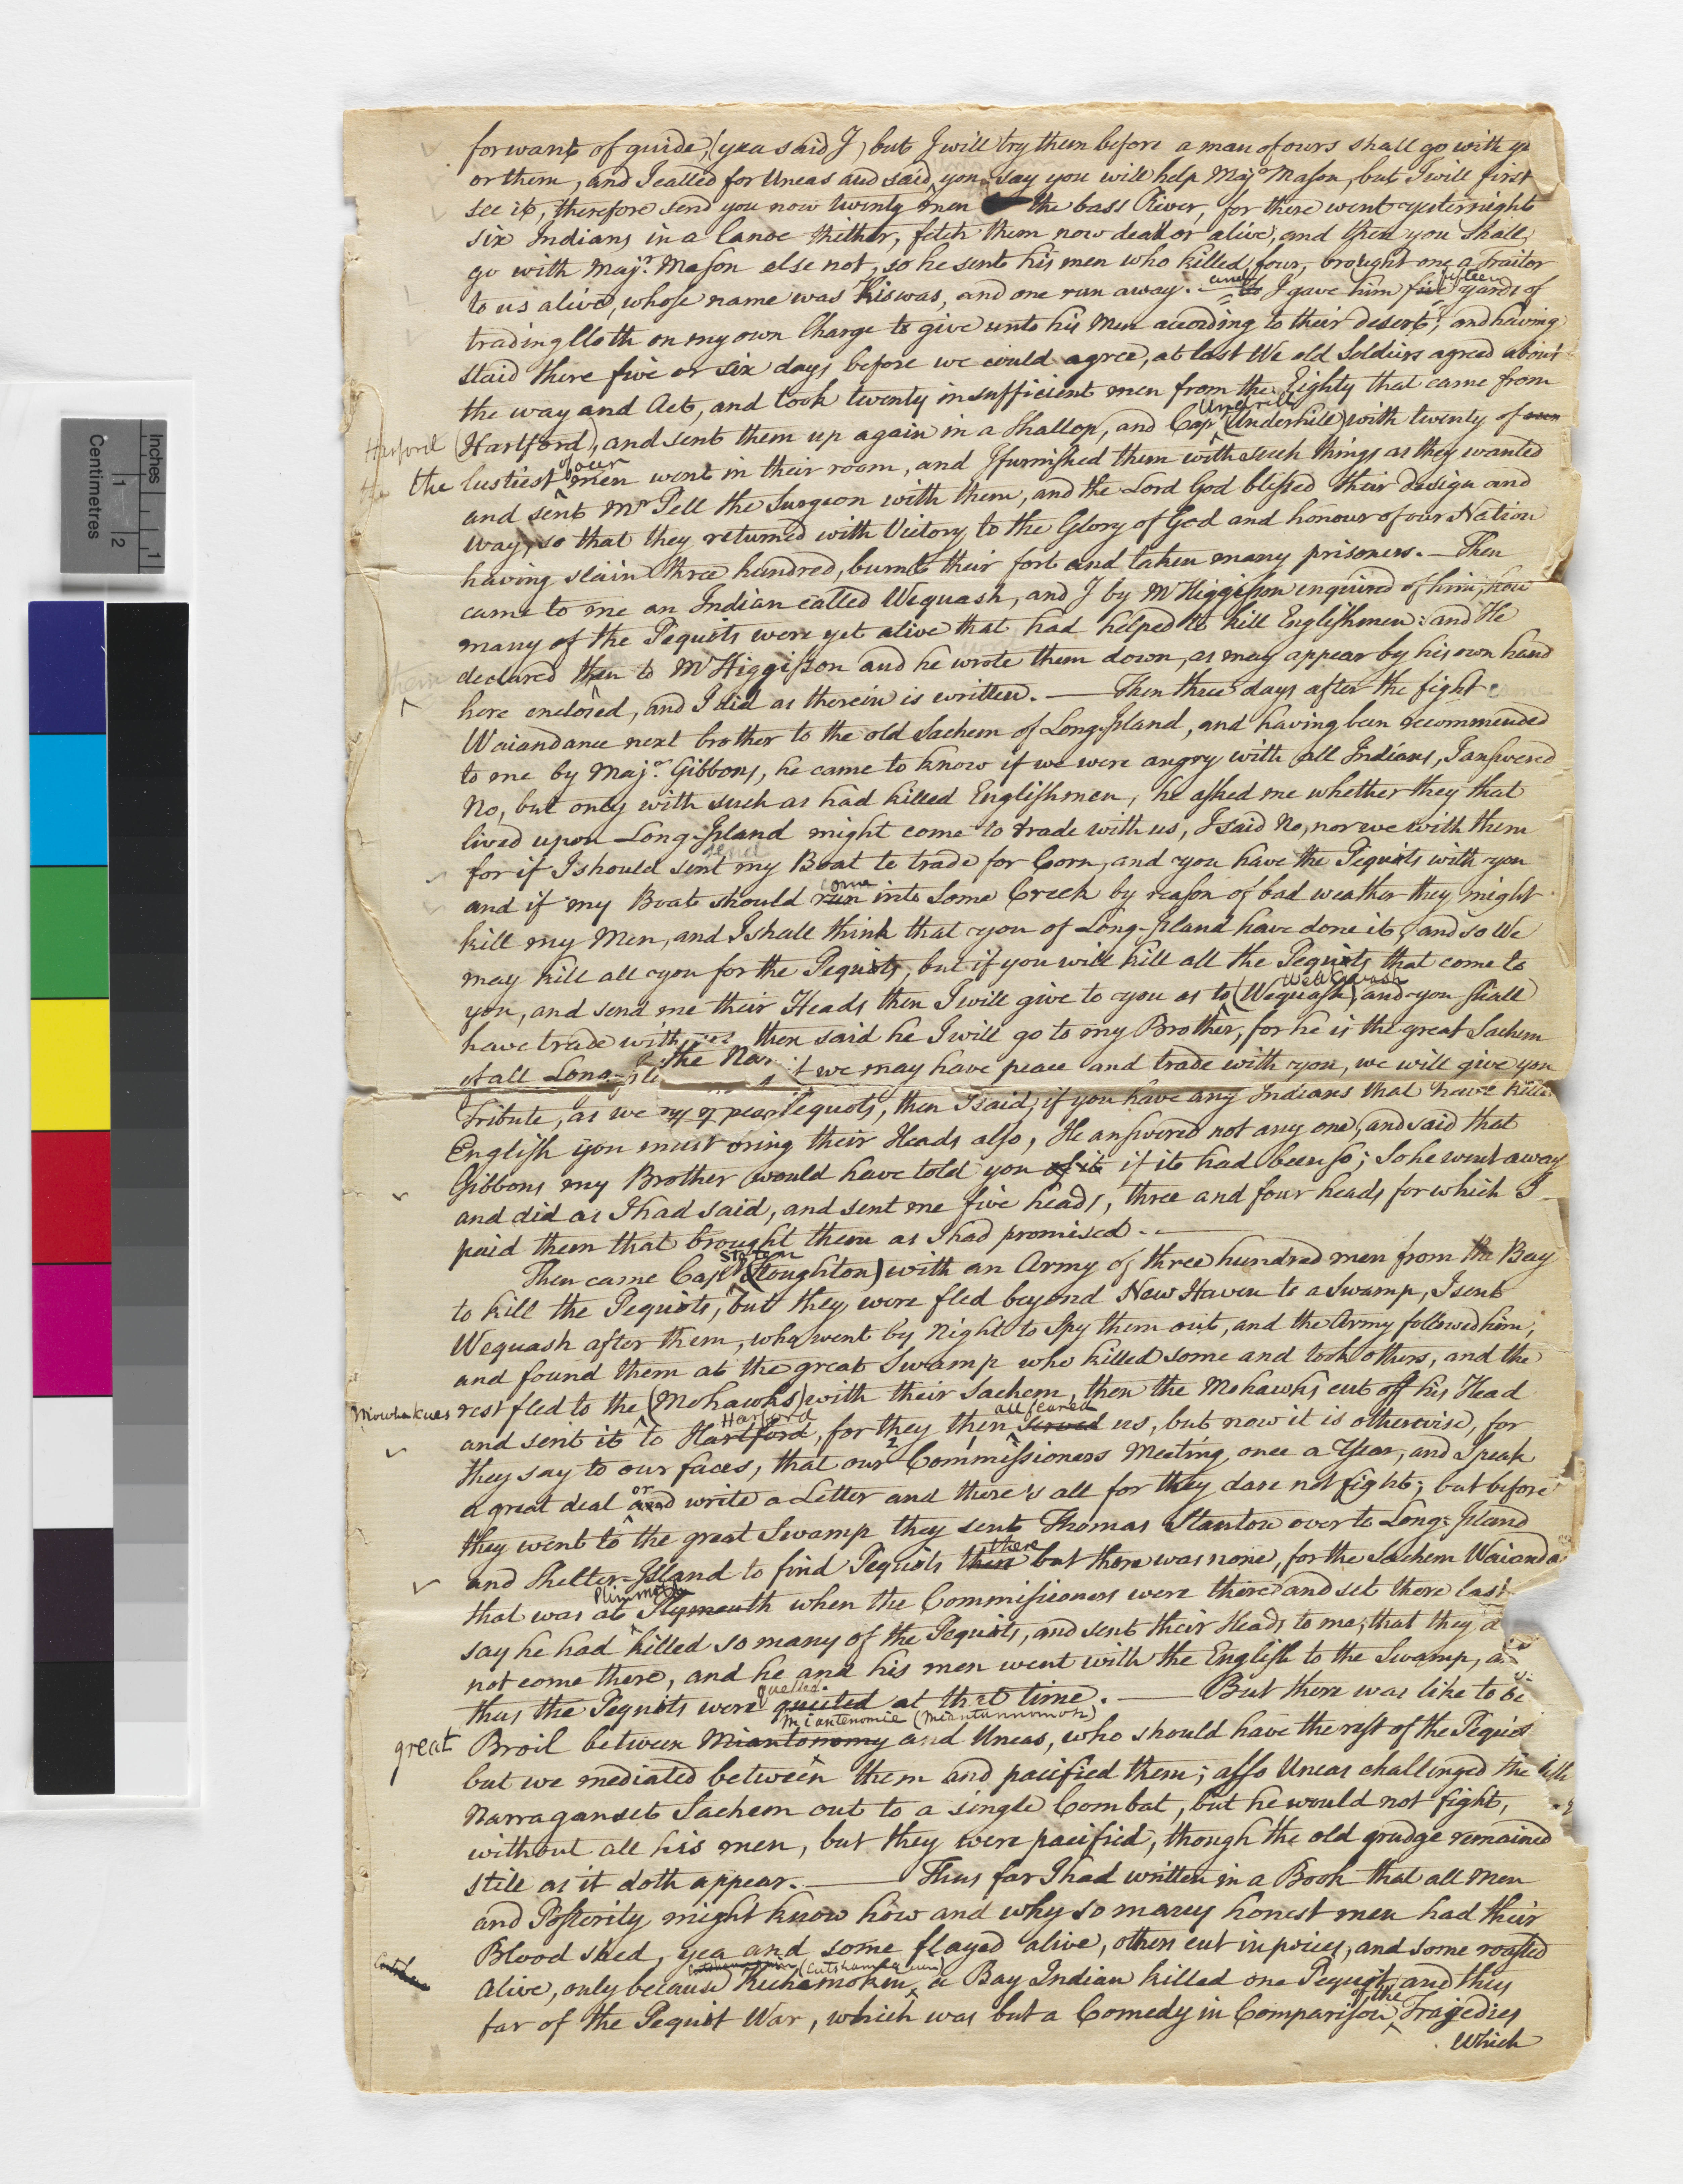 for want of guide, (yea said I) but I will try them before a man of ours shall go with yo
or them, and I called for Uncas and said, you say you will help Majr Mason, but I will first
see it, therefore send you now twenty men the bass River, for there went yesternight
six Indians in a Canoe thither, fetch them now dead or alive, and then you shall
go with Majr. Mason else not, so he sent his men who killed four, brought one a traitor
to us alive, whose name was Kiswas, and one run away. — and I gave him five fifteen yards of
trading Cloth on my own Charge to give unto his Men according to their desert; and having
staid there five or six days before we could agree, at last We old Soldiers agreed about
the way and Act, and took twenty insufficient men from the Eighty that came from
Harford (Hartford), and sent them up again in a Shallop, and Capt Undrill (Underhill) with twenty of our
the the lustiest of our men went in their room, and I furnished them with such things as they wanted
and sent Mr Pell the Surgeon with them, and the Lord God blessed their design and
way, so that they returned with Victory to the Glory of God and honour of our Nation
having slain three hundred, burnt their fort and taken many prisoners. — Then
came to me an Indian called Wequash, and I by Mr Higgisson enquired of him, how
many of the Pequits were yet alive that had helped to kill Englishmen: and He
them declared then to Mr Higgisson and he wrote them down, as may appear by his own hand
here enclosed, and I did as therein is written. — Then three days after the fight came
Waiandance next brother to the old Sachem of Long-Island, and having been recommended
to me by Majr. Gibbons, he came to know if we were angry with all Indians, I answered
No, but only with such as had killed Englishmen, he asked me whether they that
lived upon Long-Island might come to trade with us, I said No, nor we with them
for if I should sent send my Boat to trade for Corn, and you have the Pequits with you
and if my Boat should run come into some Creek by reason of bad weather they might
kill my Men, and I shall think that you of Long-Island have done it, and so We
may kill all you for the Pequits, but if you will kill all the Pequits that come to
you, and send me their Heads then I will give to you as to Weakwash (Wequash) and you shall
have trade with us then said he I will go to my Brother, for he is the great Sachem
of all Long- the Nar t we may have peace and trade with you, we will give you
Tribute, as we Pequots, then I said, if you have any Indians that have kille
English you must bring their Heads also, He answered not any one, and said that
Gibbons my Brother would have told you of it if it had been so; So he went away
and did as I had said, and sent me five heads, three and four heads for which I
paid them that brought them as I had promised. —
Then came Capt Stoton (Stoughton) with an Army of three hundred men from the Bay
to kill the Pequits, but they were fled beyond New Haven to a Swamp, I sent
Wequash after them, who went by Night to Spy them out, and the Army followed him,
and found them at the great Swamp who killed some and took others, and the
Mowhakues rest fled to the (Mohawks) with their Sachem, then the Mohawks cut off his Head
and sent it to Hartford Harford, for they then served all feared us, but now it is otherwise, for
they say to our faces, that our Commissioners Meeting once a Year, and Speak
a great deal and or write a Letter and there's all for they dare not fight; but before
they went to the great Swamp they sent Thomas Stanton over to Long-Island
and Shelter-Island to find Pequits then there but there was none, for the Sachem Waianda
that was at Plymouth Plimmoth when the Commissioners were there and set there last
say he had killed so many of the Pequits, and sent their Heads to me, that they d
not come there, and he and his men went with the English to the Swamp, and
thus the Pequits were quieted quelled at that time. — But there was like to be
great Broil between Miantonomy Miantenomie (Miantunnomoh) and Uncas, who should have the rest of the Pequits
but we mediated between them and pacified them; also Uncas challenged the
Narraganset Sachem out to a single Combat, but he would not fight,
without all his men, but they were pacified, though the old grudge remained
still as it doth appear. — Thus far I had written in a Book that all Men
and Posterity might know how and why so many honest men had their
Blood shed, yea and some flayed alive, others cut in pieces, and some roasted
Alive, only because Kichamokin (Cutshamequin) a Bay Indian killed one Pequit, and thus
far of the Pequit War, which was but a Comedy in Comparison of the Tragedies
Which
Inches
1
Centimetres
1
2